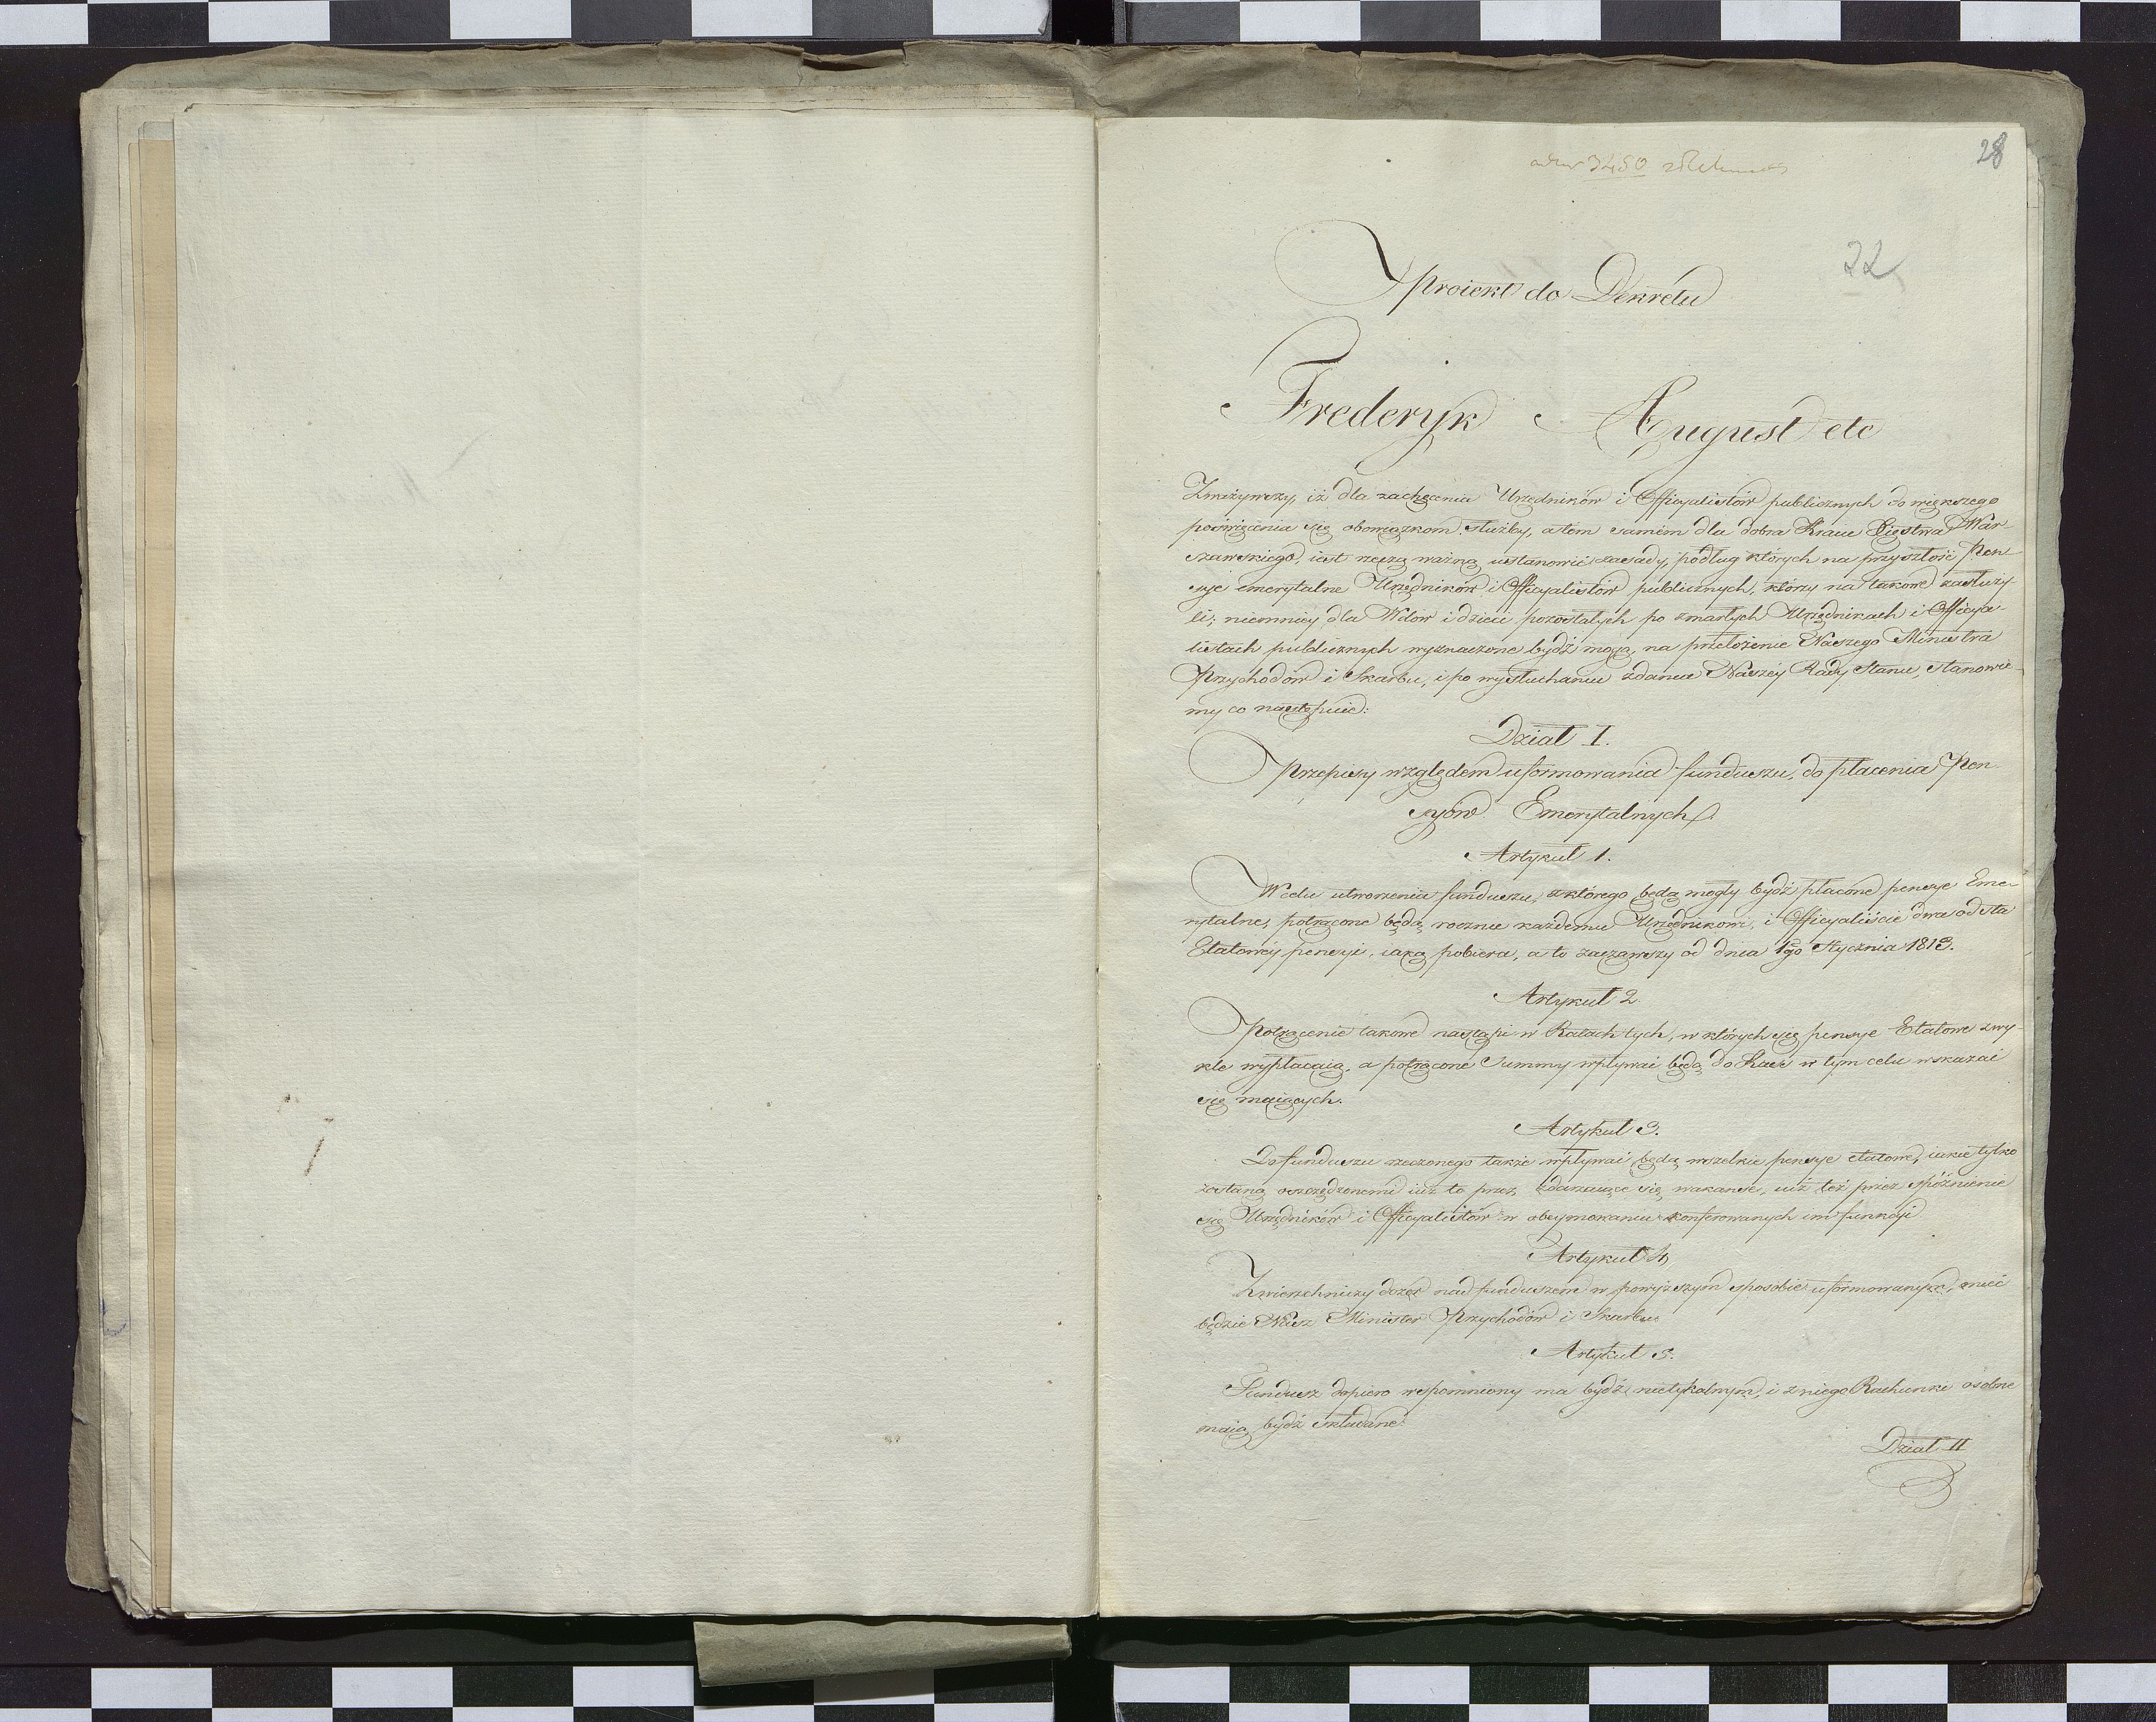 28
3450
22
Proiekt do Dekretu
Frederyk August etc
Zważywszy, iż dla zachęcenia Urzędników i Officyalistów publicznych do większego
poświęcenia się obowiązkom służby, a tem samém dla dobra Kraiu Xięstwa War-
szawskiego, iest rzeczą ważną ustanowić zasady, podług których na przyszłość Pen-
sye emerytalne Urzędników i Officyalistów publicznych, którzy na takowe zasłuży-
li; niemniey dla Wdow i dzieci pozostałych po zmarłych Urzędnikach i Officya-
listach publicznych wyznaczone bydź mogą, na przełożenie Naszego Ministra
Przychodów i Skarbu, i po wysłuchaniu zdania Naszéy Rady Stanu, stanowie-
my co następuie:
Dział I.
Przepisy względem uformowania funduszu, do płacenia Pen-
syów Emerytalnych.
Artykuł 1.
W celu utworzenia funduszu, z którego będą mogły bydź płacone pensye Eme-
rytalne, potrącone będą rocznie każdemu Urzędnikowi, i Officyaliście dwa od sta
Etatowéy pensyi, iaką pobiera, a to zacząwszy od dnia 1go Stycznia 1813.
Artykuł 2
Potrącenie takowe nastąpi w Ratach tych, w których się pensye Etatowe zwy-
kle wypłacaią, a potrącone Summy wpływać będą do Kass w tym celu wskazać
się maiących.
Artykuł 3.
Do funduszu rzeczonego także wpływać będą wszelkie pensye etatowe, iakie tylko
zostaną oszczędzonemi iuż to przez zdarzaiące się wakanse, iuż też przez spóźnienie
się Urzędników i Officyalistów w obeymowaniu konferowanych im funkcyi
Artykuł 4
Zwierzchniczy dozór nad funduszem w powyższym sposobie uformowanym, mieć
będzie Nasz Minister Przychodów i Skarbu
Artykuł 5.
Fundusz dopiero wspomniony ma bydź nietykalnym, i z niego Rachunki osobne
maią bydź składane.
Dział II